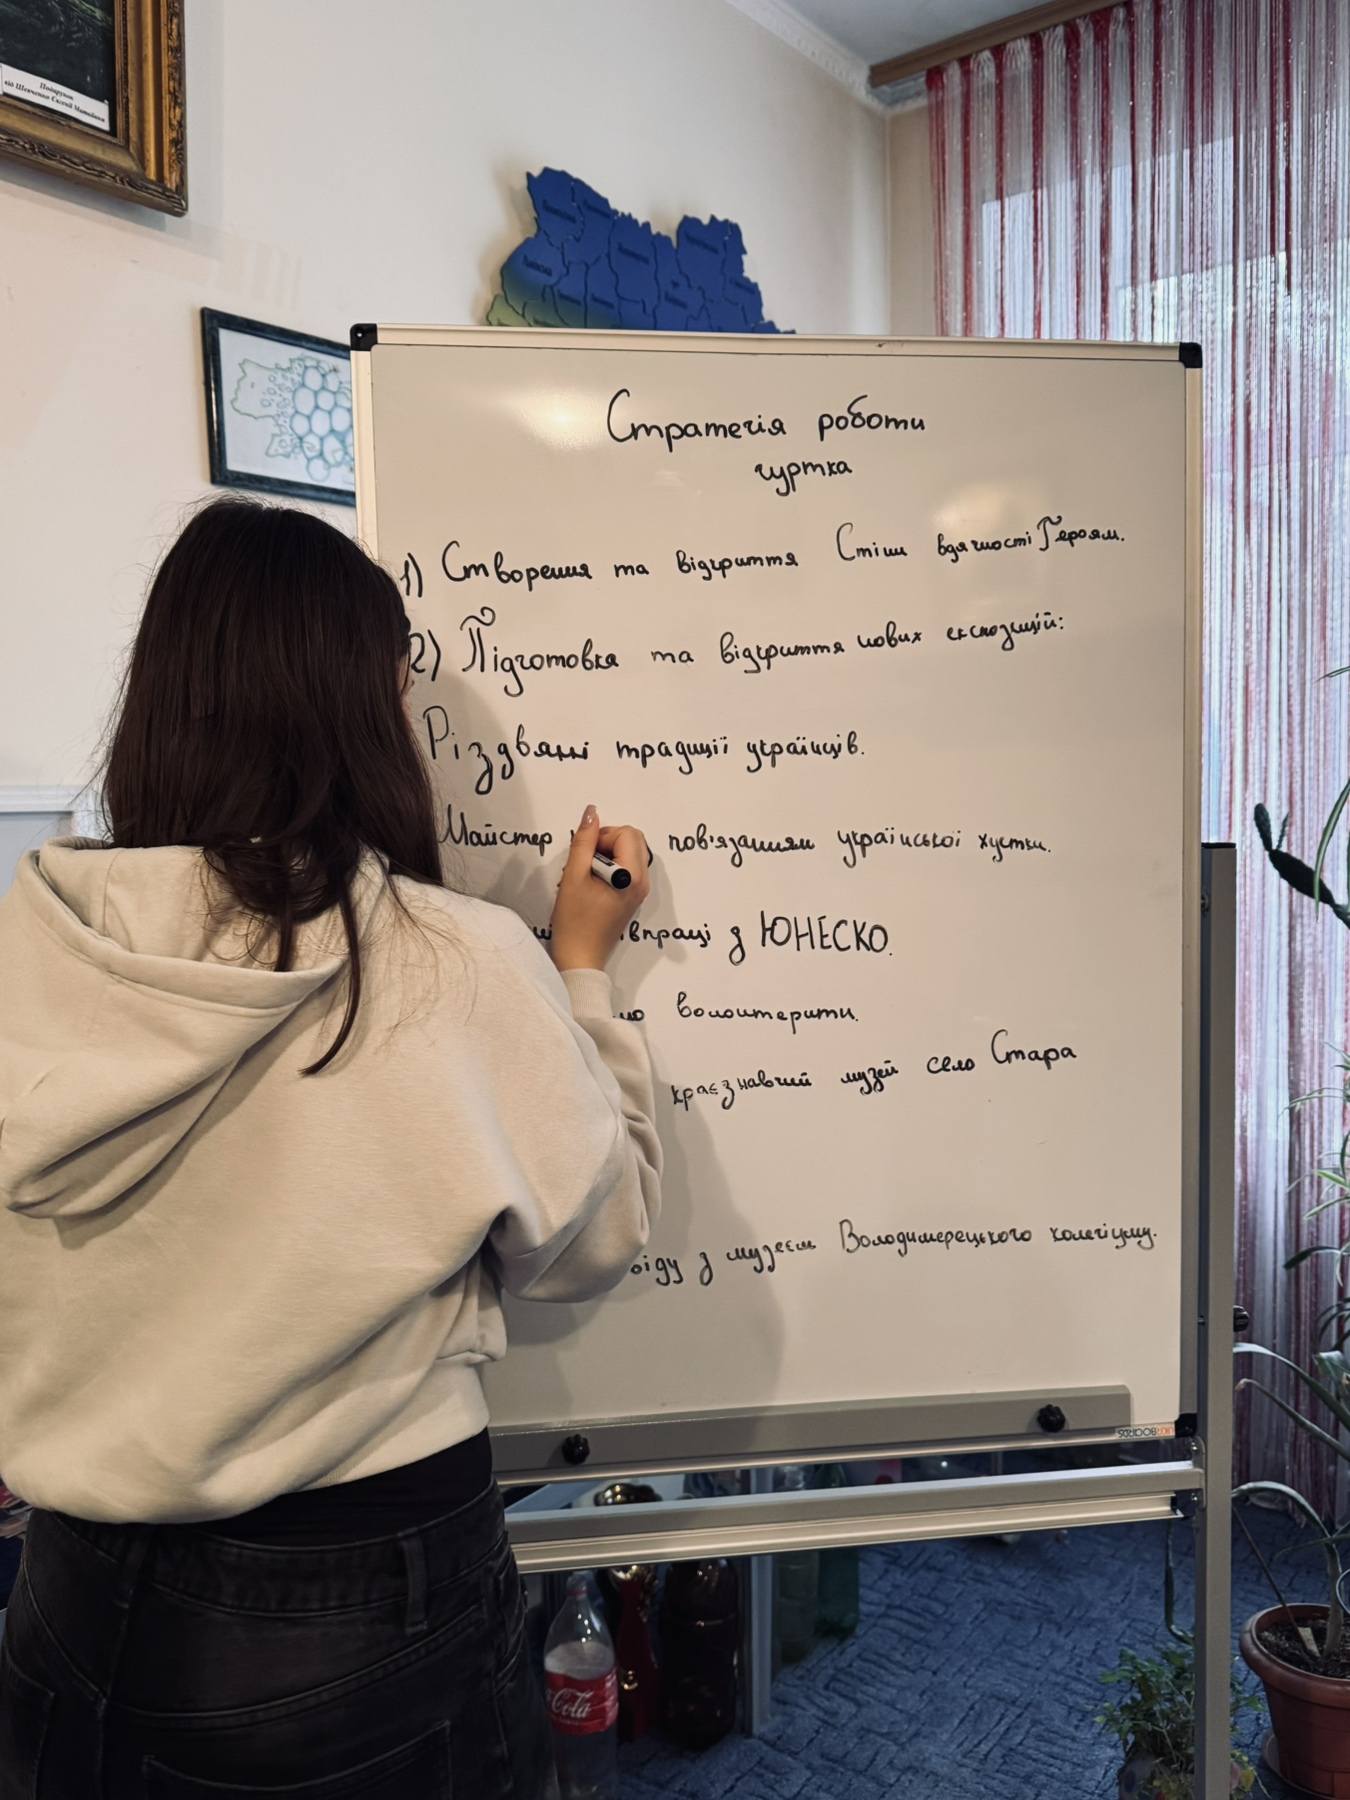 Подарунок
від Шевченко Євгенії Матвіївни
Стратегія роботи
гуртка
1) Створення та відкриття Стіни вдячності Героям.
2) Підготовка та відкриття нових експозицій:
Різдвяні традиції українців.
Майстер пов'язанням української хустки.
з ЮНЕСКО.
волонтерити.
краєзнавчий музей село Стара
з музеєм Володимирецького колегіуму.
UKRBOARDS
Cola